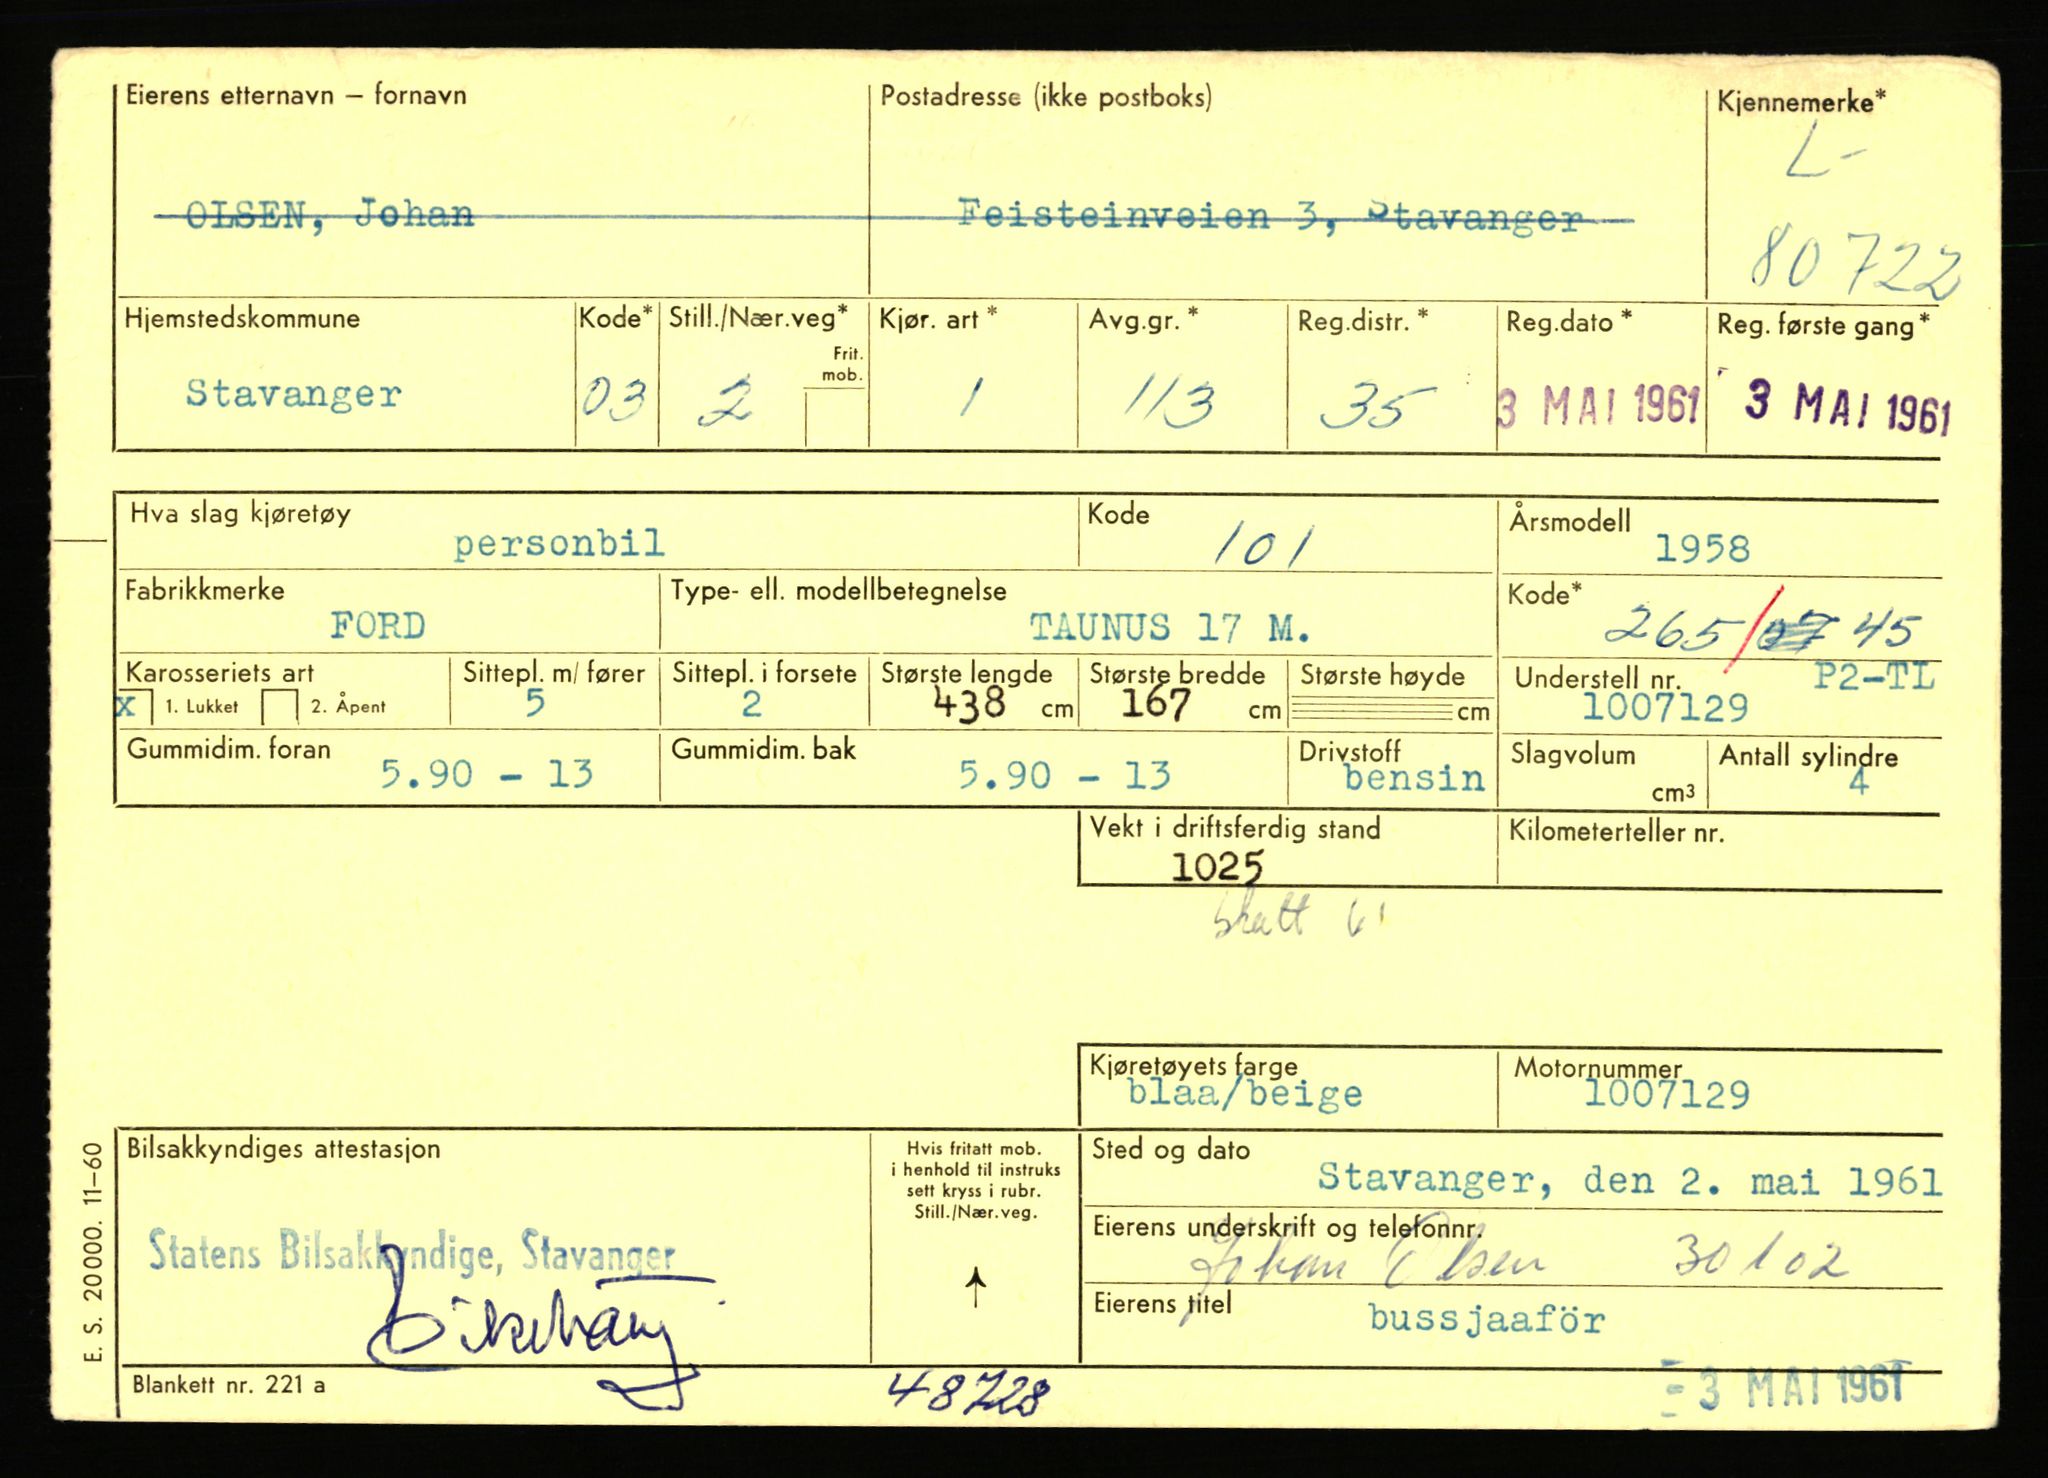 Eierens etternavn – fornavn Postadresse (ikke postboks) Kjennemerke*
L-
OLSEN, Johan Feisteinveien 3, Stavanger
80722
Hjemstedskommune Kode* Still./Nær.veg* Kjør. art * Avg.gr. * Reg.distr. * Reg.dato * Reg. første gang*
Frit.
mob.
Stavanger 03 2 1 113 35 3 MAI 1961 3 MAI 1961
Hva slag kjøretøy Kode Årsmodell
personbil 101 1958
Fabrikkmerke Type- ell. modellbetegnelse Kode*
FORD TAUNUS 17 M. 265/ 45
Karosseriets art Sittepl. m/ fører Sittepl. i forsete Største lengde Største bredde Største høyde Understell nr. P2-TL
x 1. Lukket 2. Åpent 5 2 438 cm 167 cm cm 1007129
Gummidim. foran Gummidim. bak Drivstoff Slagvolum Antall sylindre
5.90 - 13 5.90 - 13 bensin cm3 4
Vekt i driftsferdig stand Kilometerteller nr.
1025
skatt 61
Kjøretøyets farge Motornummer
blaa/beige 1007129
Bilsakkyndiges attestasjon Hvis fritatt mob.
i henhold til instruks
sett kryss i rubr.
Still./Nær.veg.
Sted og dato
Stavanger, den 2. mai 1961
Eierens underskrift og telefonnr.
Statens Bilsakkyndige, Stavanger
Johan Olsen 30102
Eierens titel
bussjaaför
E. S. 20000. 11-60
Blankett nr. 221 a 48728 - 3 MAI 1961